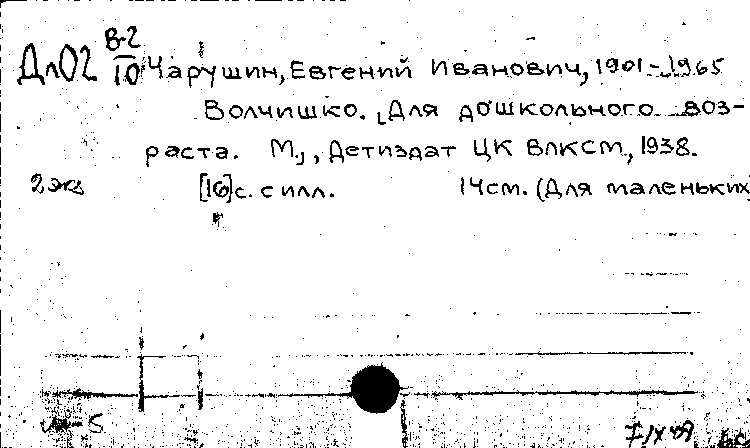 Дл02 В-2/10 Чарушин, Евгений Иванович, 1901-1965
Волчишко. [Для дошкольного воз-
раста. М.], Детиздат ЦК ВЛКСМ, 1938.
2 экз [16] с. с илл. 14 см. (Для маленьких)